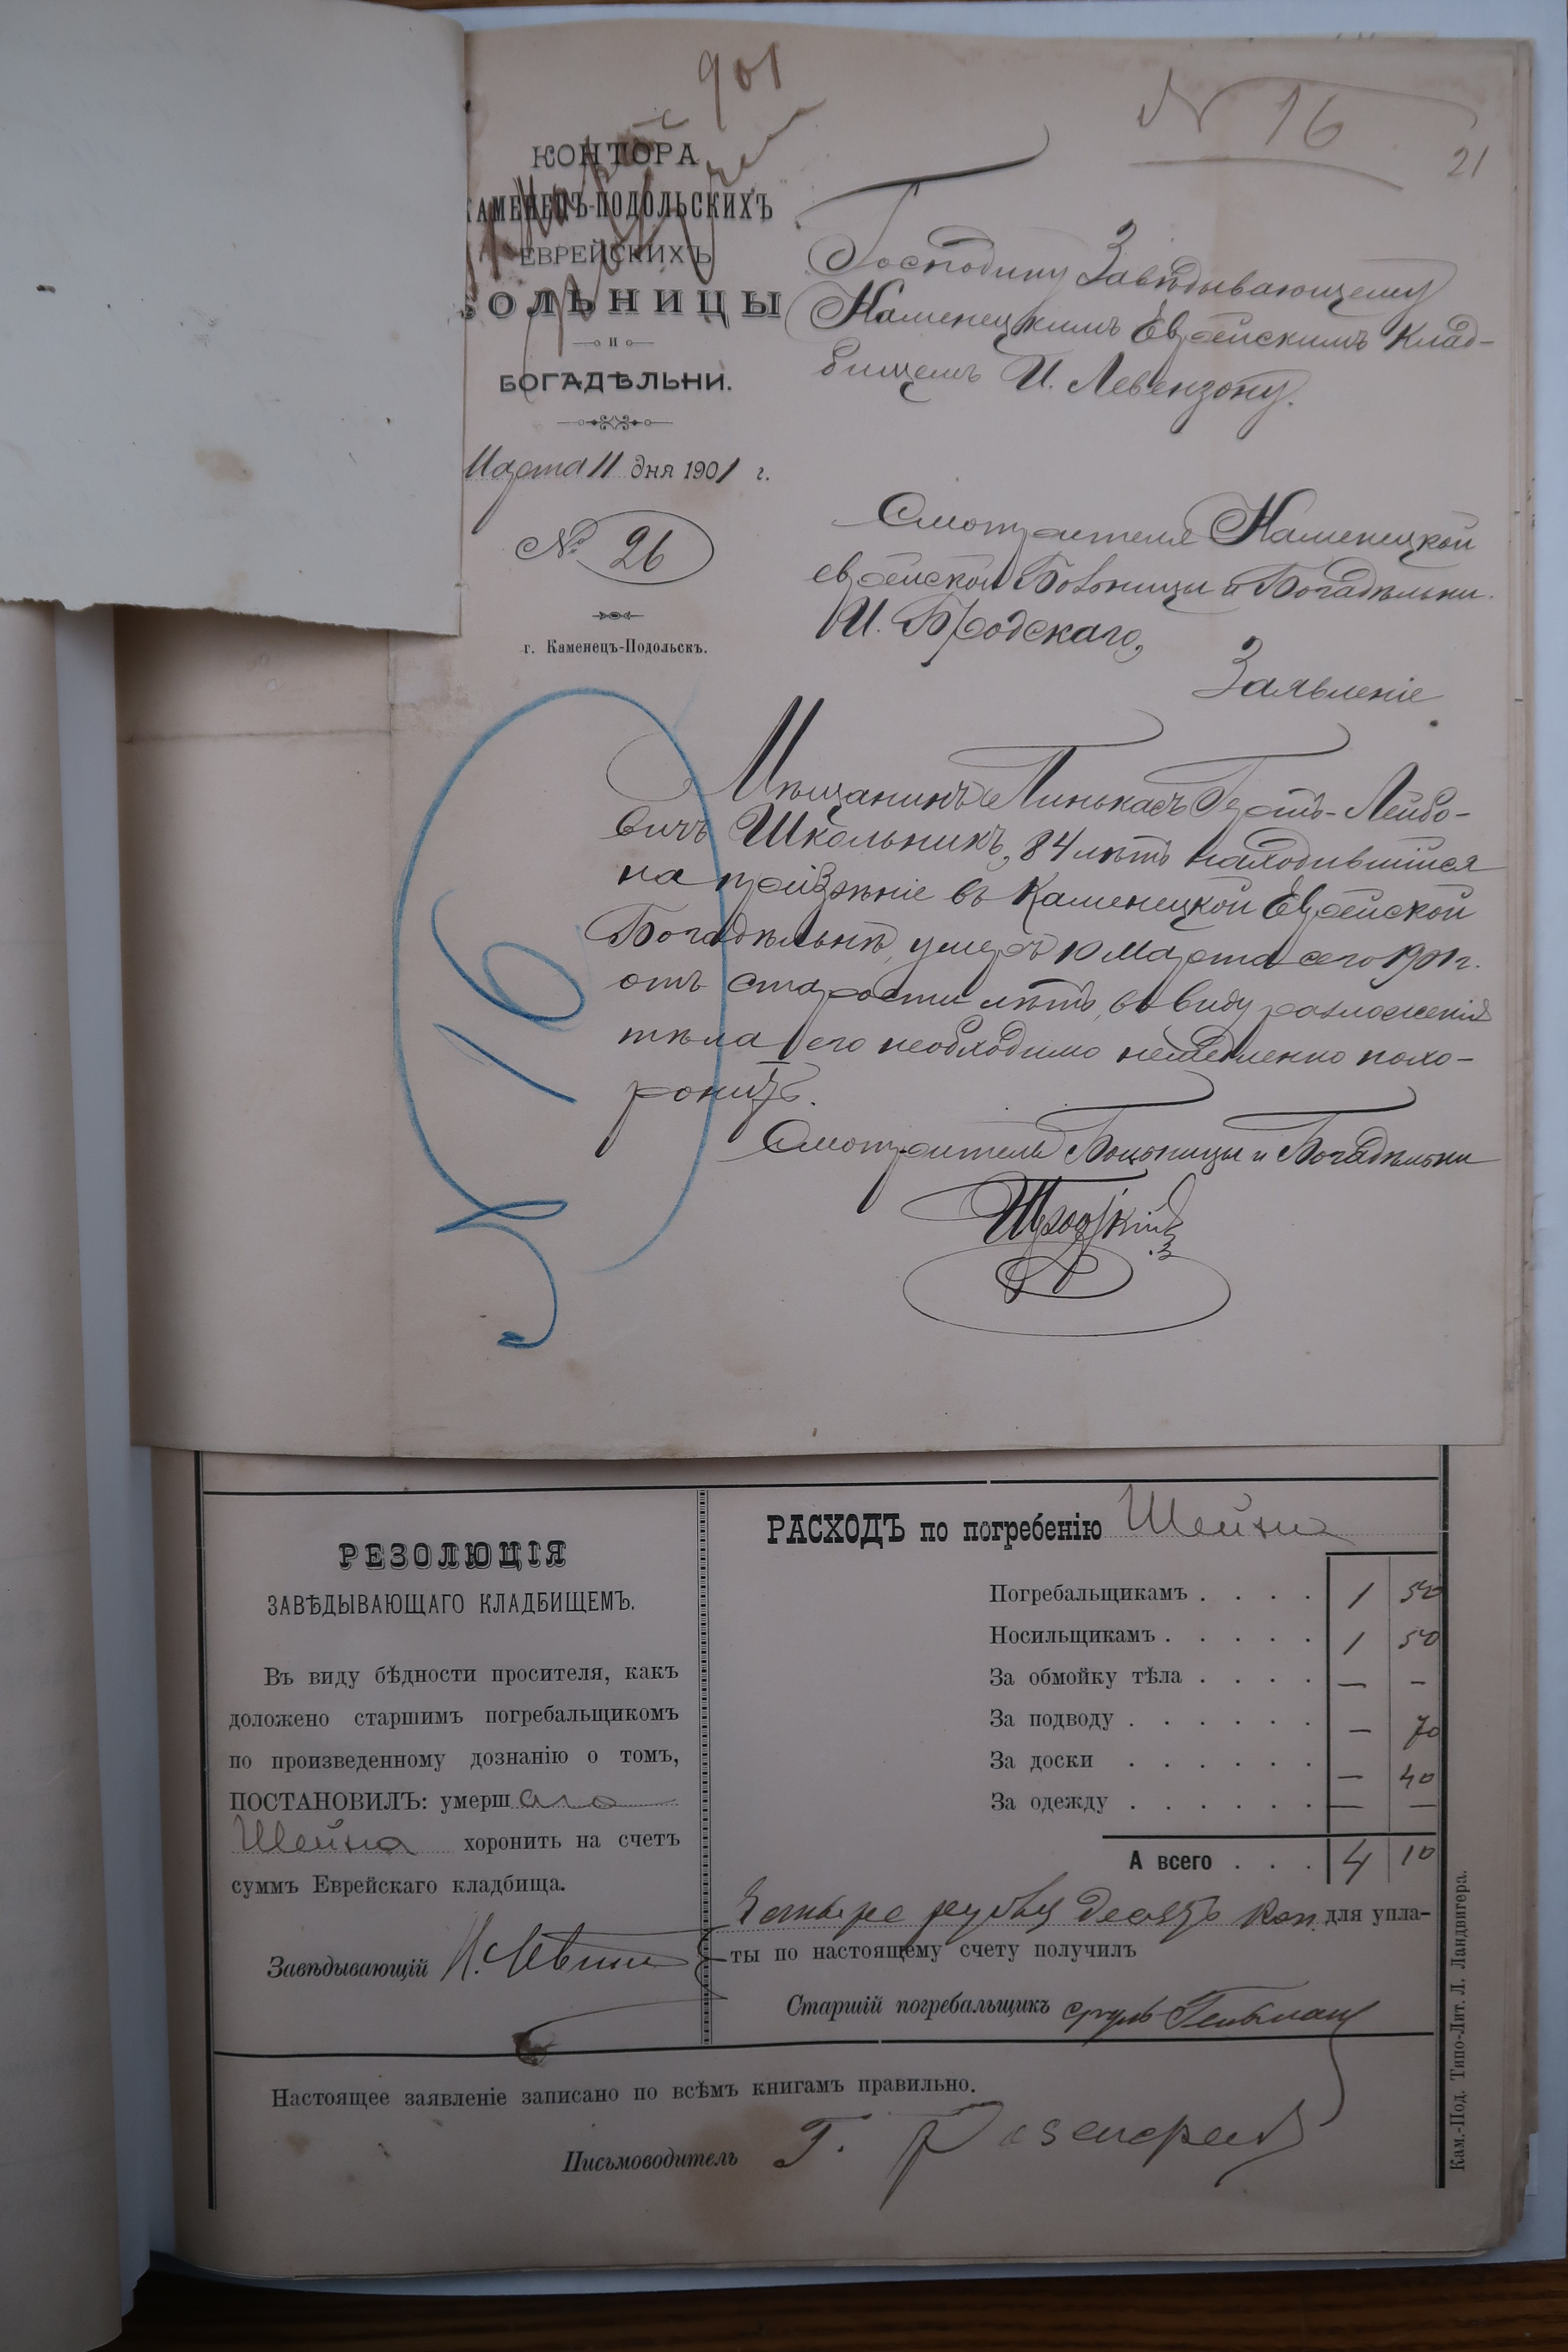 901
N 16
21
КОНТОРА
КАМЕНЕЦЪ-ПОДОЛЬСКИХЪ
ЕВРЕЙСКИХЪ
БОЛЬНИЦЫ
и
БОГАДѢЛЬНИ.
Марта 11 дня 1901 г.
№ 26
г. Каменецъ-Подольскъ.
Господину Завѣдывающему
Каменецкимъ Еврейскимъ Клад-
бищемъ И. Левензону.
Смотрителя Каменецкой
еврейской Больницы и Богадѣльни.
И. Бродскаго,
Заявленіе
Мѣщанинъ Пинькасъ Гершъ-Лейбо-
вичъ Школьникъ, 84 лѣтъ находившійся
на призрѣніе въ Каменецкой Еврейской
Богадѣльнѣ, умеръ 10 Марта сего 1901 г.
отъ старости лѣтъ, въ виду разложенія
тѣла его необходимо немедленно похо-
ронить.
Смотритель Больницы и Богадѣльни
Бродскій
16
РЕЗОЛЮЦІЯ
ЗАВѢДЫВАЮЩАГО КЛАДБИЩЕМЪ.
Въ виду бѣдности просителя, какъ
доложено старшимъ погребальщикомъ
по произведенному дознанію о томъ,
ПОСТАНОВИЛЪ: умерш аго
Шейна хоронить на счетъ
суммъ Еврейскаго кладбища.
Завѣдывающій
РАСХОДЪ по погребенію Шейна
Погребальщикамъ . . . . 1 50
Носильщикамъ . . . . . 1 50
За обмойку тѣла . . . . — –
За подводу . . . . . . — 70
За доски . . . . . . — 40
За одежду . . . . . . — —
А всего . . . 4 10
Четыре рубля десять коп. для упла-
ты по настоящему счету получилъ
Старшій погребальщикъ сруль Гельман
Настоящее заявленіе записано по всѣмъ книгамъ правильно.
Письмоводитель Г.
Кам.-Под. Типо-Лит. Л. Ландвигера.